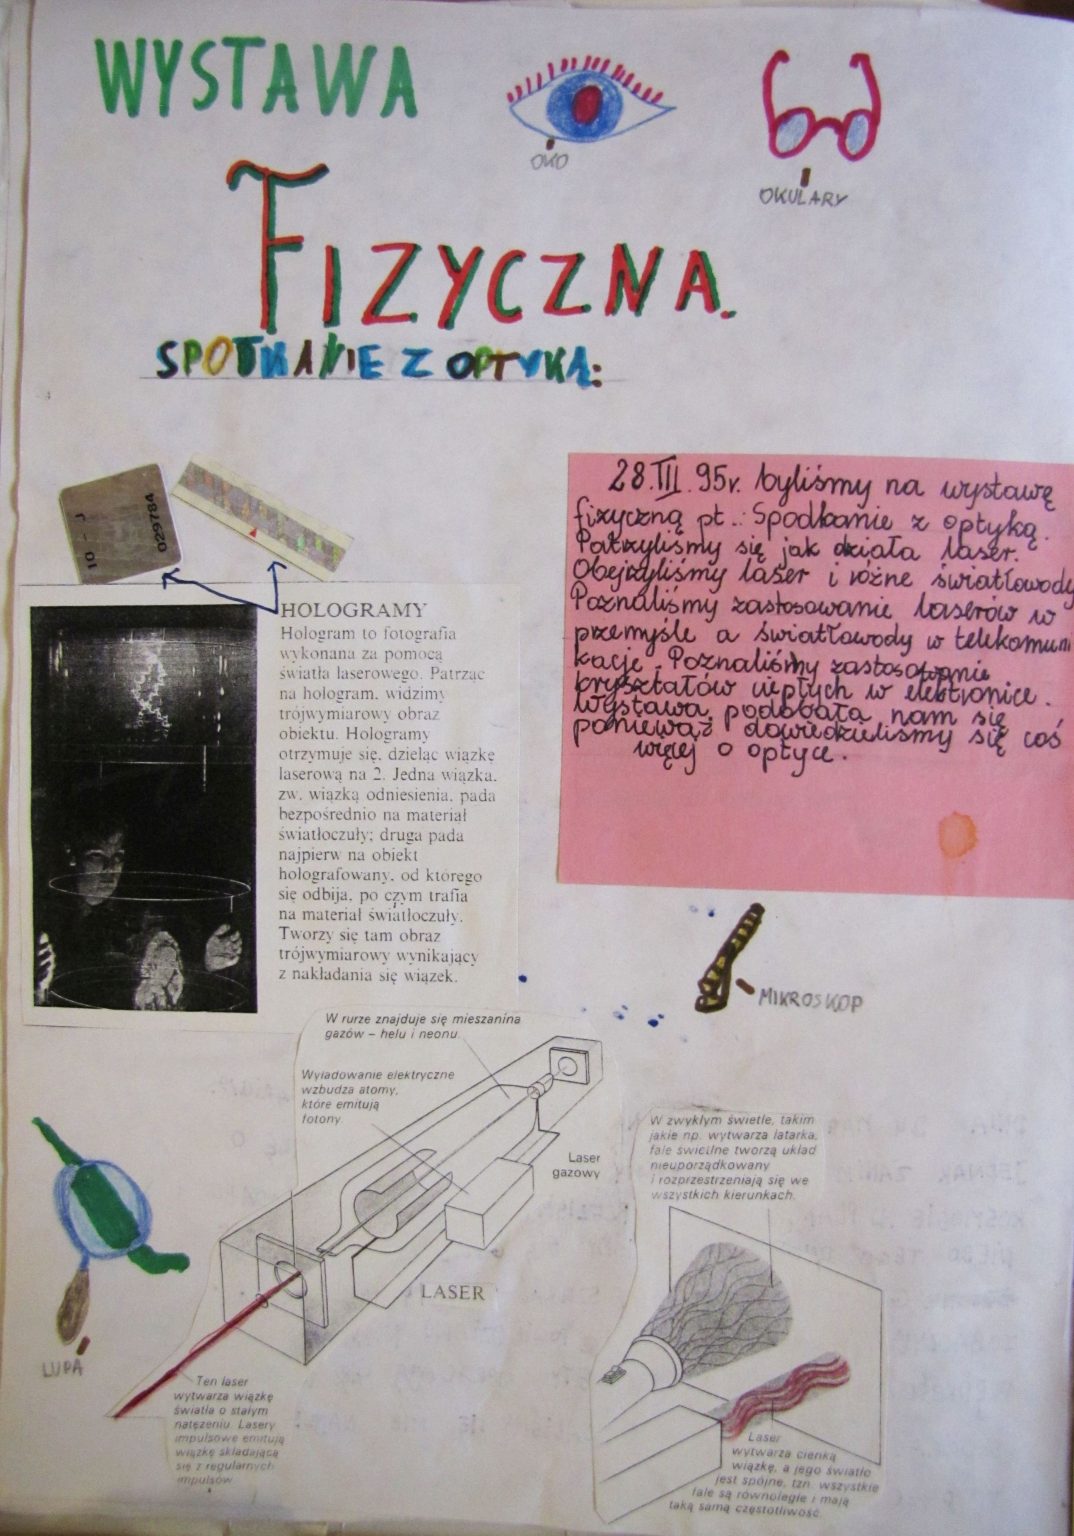 WYSTAWA
OKO
OKULARY
FIZYCZNA.
SPOTKANIE Z OPTYKĄ:
10 - J
029784
28.III.95r. byliśmy na wystawę
fizyczną pt.: Spodkanie z optyką.
Patrzyliśmy się jak działa laser.
Obejrzyliśmy laser i różne światłowody
Poznaliśmy zastosowanie laserów w
przemyśle a światłowody w telekomuni
kacje. Poznaliśmy zastosowanie
kryształów ciepłych w elektronice.
Wystawa podobała nam się
poniewąż dowiedzieliśmy się coś
więcej o optyce.
HOLOGRAMY
Hologram to fotografia
wykonana za pomocą
światła laserowego. Patrząc
na hologram, widzimy
trójwymiarowy obraz
obiektu. Hologramy
otrzymuje się, dzieląc wiązkę
laserową na 2. Jedna wiązka,
zw. wiązką odniesienia, pada
bezpośrednio na materiał
światłoczuły; druga pada
najpierw na obiekt
holografowany, od którego
się odbija, po czym trafia
na materiał światłoczuły.
Tworzy się tam obraz
trójwymiarowy wynikający
z nakładania się wiązek.
MIKROSKOP
W rurze znajduje się mieszanina
gazów – helu i neonu.
Wyładowanie elektryczne
wzbudza atomy,
które emitują
fotony.
Laser
gazowy
LASER
W zwykłym świetle, takim
jakie np. wytwarza latarka,
fale świetlne tworzą układ
nieuporządkowany
i rozprzestrzeniają się we
wszystkich kierunkach.
LUPA
Ten laser
wytwarza wiązkę
światła o stałym
natężeniu. Lasery
impulsowe emitują
wiązkę składającą
się z regularnych
impulsów.
Laser
wytwarza cienką
wiązkę, a jego światło
jest spójne, tzn. wszystkie
fale są równoległe i mają
taką samą częstotliwość.